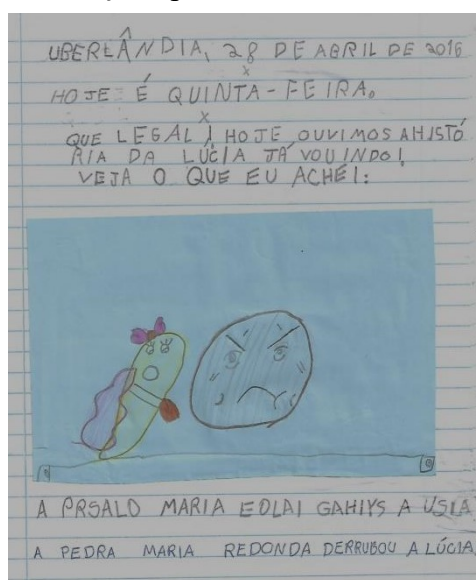 UBERLÂNDIA, 28 DE ABRIL DE 2016
x
HOJE É QUINTA-FEIRA.
x
QUE LEGAL! HOJE OUVIMOS A HISTÓ
RIA DA LÚCIA JÁ VOU INDO!
VEJA O QUE EU ACHEI:
A PRSALO MARIA EOLAI GAHIYS A USIA
A PEDRA MARIA REDONDA DERRUBOU A LÚCIA